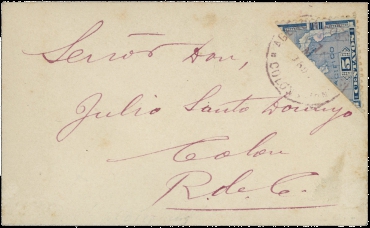 Señor Don,
Julio Santo Domingo
Colon
R. de C.
5
CENTAVOS